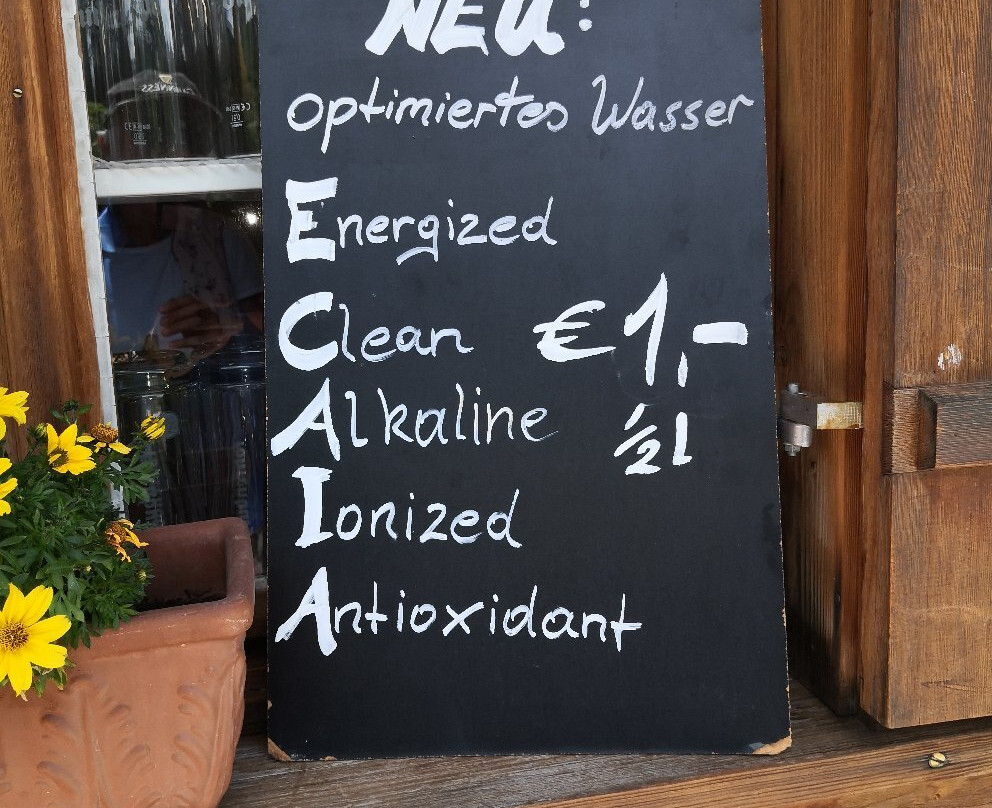 NEU:
optimiertes Wasser
Energized
Clean € 1,-
Alkaline 1/2 l
Ionized
Antioxidant